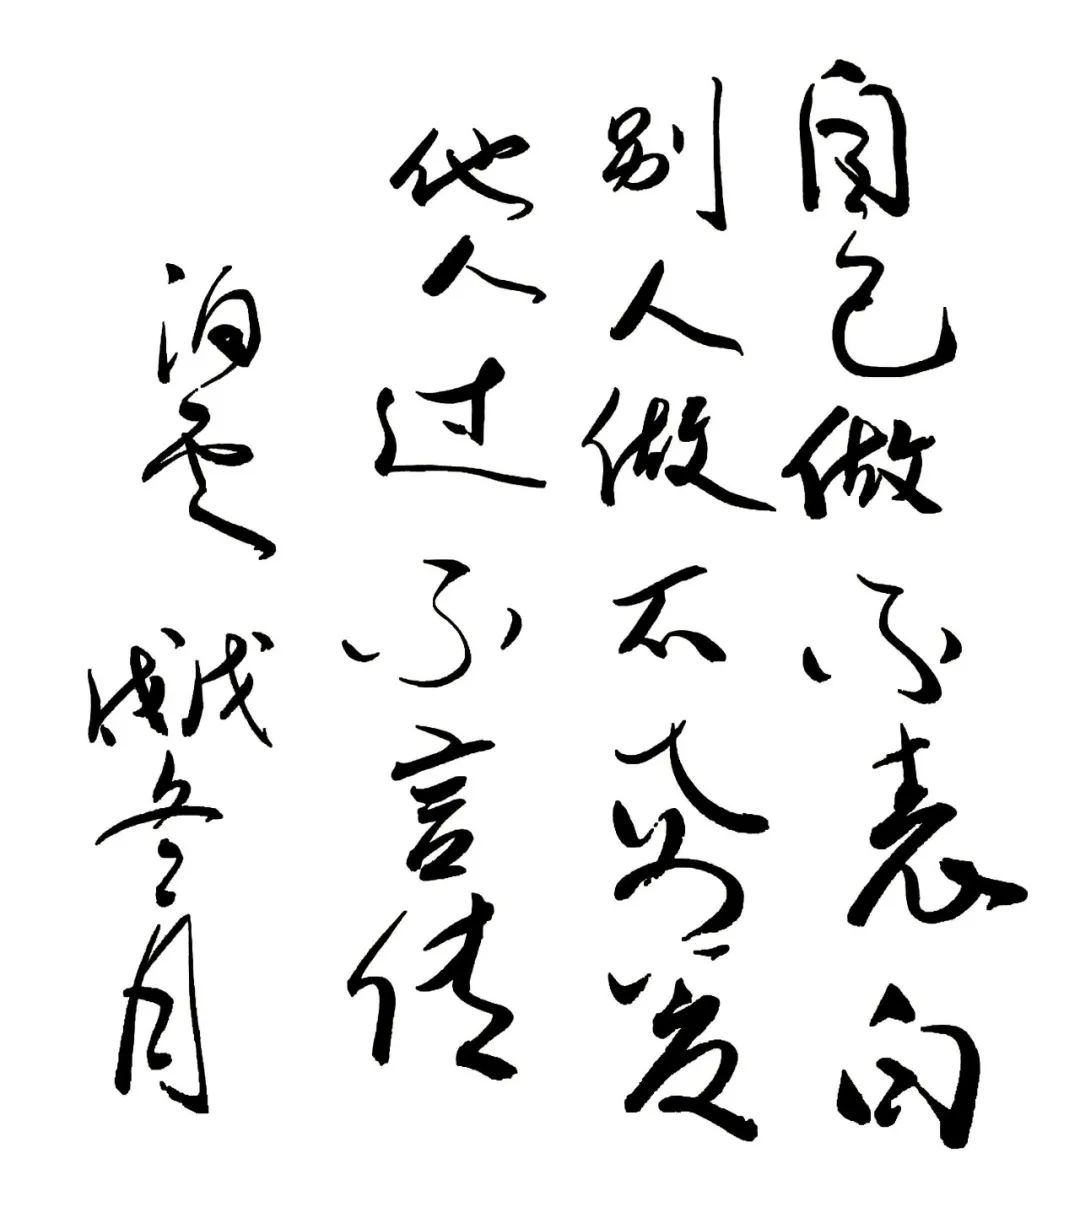 自己做不表白
别人做不
他人过不言传
泊云 戊戌冬月